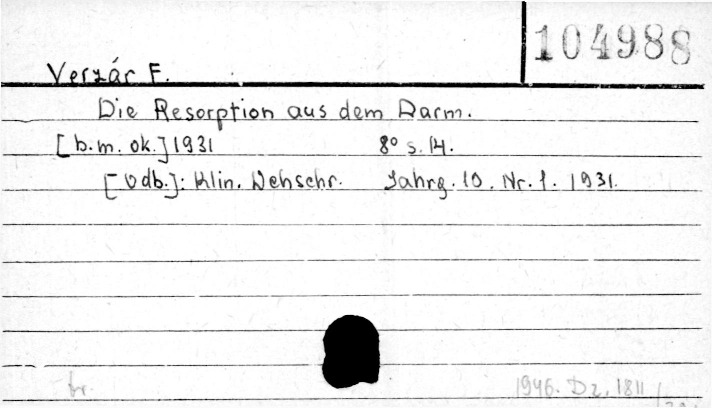 104988
Verzár F.
Die Resorption aus dem Darm.
[b.m. ok.] 1931 8° s. 14.
[Odb.]: Klin. Wchschr. Jahrg. 10. Nr. 1. 1931.
br. 1946. Dz. 1811/